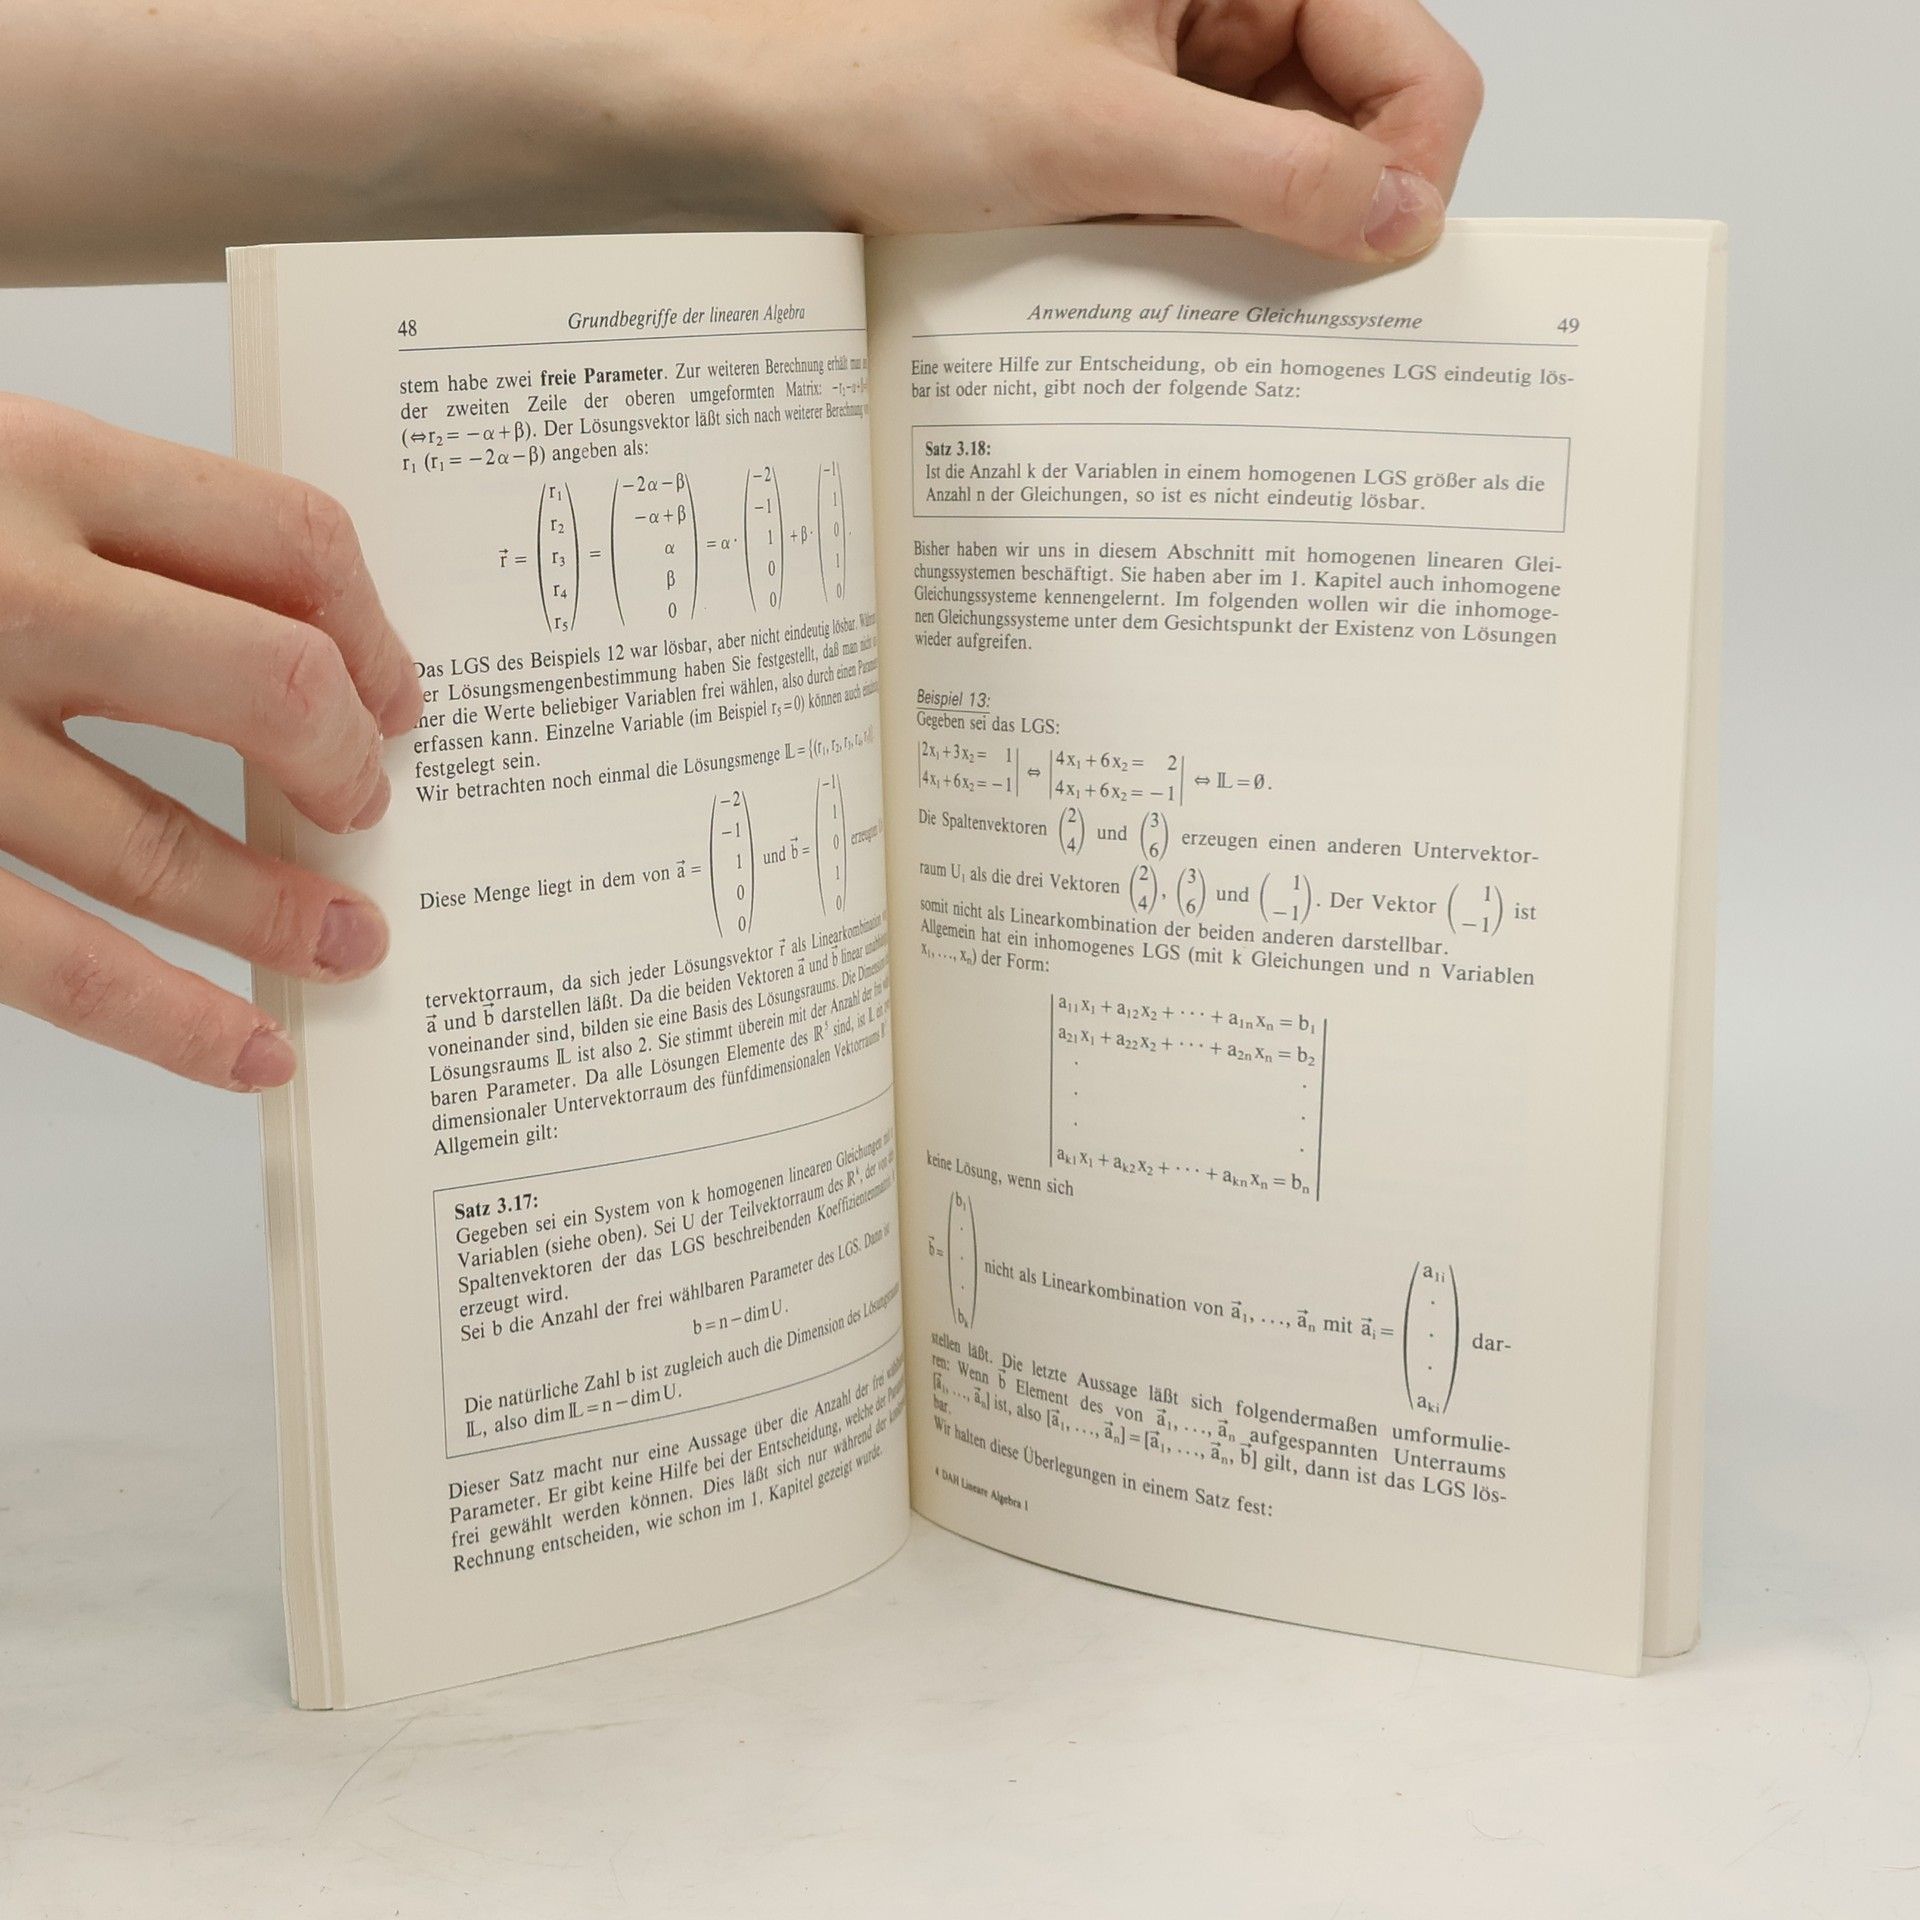 48 Grundbegriffe der linearen Algebra
stem habe zwei freie Parameter. Zur weiteren Berechnung erhält man
der zweiten Zeile der oberen umgeformten Matrix:
(⇔r₂ = −α+β). Der Lösungsvektor läßt sich nach weiterer Berechnung
r₁ (r₁ = −2α−β) angeben als:
r₁ −2α−β −2 −1
r₂ −α+β −1 1
r⃗ = r₃ = α = α · 1 + β · 0 .
r₄ β 0 1
r₅ 0 0 0
Das LGS des Beispiels 12 war lösbar, aber nicht eindeutig lösbar.
er Lösungsmengenbestimmung haben Sie festgestellt, daß man nicht
mer die Werte beliebiger Variablen frei wählen, also durch einen
erfassen kann. Einzelne Variable (im Beispiel r₅=0) können auch
festgelegt sein.
Wir betrachten noch einmal die Lösungsmenge 𝕃 = {(r₁, r₂, r₃, r₄, r₅)}.
−2 −1
−1 1
Diese Menge liegt in dem von a⃗ = 1 und b⃗ = 0
0 1
0 0
tervektorraum, da sich jeder Lösungsvektor r⃗ als Linearkombination
a⃗ und b⃗ darstellen läßt. Da die beiden Vektoren a⃗ und b⃗ linear
voneinander sind, bilden sie eine Basis des Lösungsraums. Die
Lösungsraums 𝕃 ist also 2. Sie stimmt überein mit der Anzahl der
baren Parameter. Da alle Lösungen Elemente des ℝ⁵ sind, ist 𝕃
dimensionaler Untervektorraum des fünfdimensionalen Vektorraums
Allgemein gilt:
Satz 3.17:
Gegeben sei ein System von k homogenen linearen Gleichungen mit
Variablen (siehe oben). Sei U der Teilvektorraum des ℝᵏ, der von
Spaltenvektoren der das LGS beschreibenden
erzeugt wird.
Sei b die Anzahl der frei wählbaren Parameter des LGS. Dann
b = n − dim U.
Die natürliche Zahl b ist zugleich auch die Dimension des
𝕃, also dim 𝕃 = n − dim U.
Dieser Satz macht nur eine Aussage über die Anzahl der frei
Parameter. Er gibt keine Hilfe bei der Entscheidung, welche der
frei gewählt werden können. Dies läßt sich nur während der
Rechnung entscheiden, wie schon im 1. Kapitel gezeigt wurde.
Anwendung auf lineare Gleichungssysteme 49
Eine weitere Hilfe zur Entscheidung, ob ein homogenes LGS eindeutig lös-
bar ist oder nicht, gibt noch der folgende Satz:
Satz 3.18:
Ist die Anzahl k der Variablen in einem homogenen LGS größer als die
Anzahl n der Gleichungen, so ist es nicht eindeutig lösbar.
Bisher haben wir uns in diesem Abschnitt mit homogenen linearen Glei-
chungssystemen beschäftigt. Sie haben aber im 1. Kapitel auch inhomogene
Gleichungssysteme kennengelernt. Im folgenden wollen wir die inhomoge-
nen Gleichungssysteme unter dem Gesichtspunkt der Existenz von Lösungen
wieder aufgreifen.
Beispiel 13:
Gegeben sei das LGS:
|2x₁+3x₂= 1| |4x₁+6x₂= 2|
|4x₁+6x₂=−1| ⇔ |4x₁+6x₂=−1| ⇔ 𝕃=∅.
Die Spaltenvektoren (2 4) und (3 6) erzeugen einen anderen Untervektor-
raum U₁ als die drei Vektoren (2 4), (3 6) und (1 −1). Der Vektor (1 −1) ist
somit nicht als Linearkombination der beiden anderen darstellbar.
Allgemein hat ein inhomogenes LGS (mit k Gleichungen und n Variablen
x₁, ..., xₙ) der Form:
a₁₁x₁ + a₁₂x₂ + · · · + a₁ₙxₙ = b₁
a₂₁x₁ + a₂₂x₂ + · · · + a₂ₙxₙ = b₂
. .
. .
. .
aₖ₁x₁ + aₖ₂x₂ + · · · + aₖₙxₙ = bₙ
keine Lösung, wenn sich
b⃗ = (b₁ . . . bₖ) nicht als Linearkombination von a⃗₁, ..., a⃗ₙ mit a⃗ᵢ = (a₁ᵢ . . . aₖᵢ) dar-
stellen läßt. Die letzte Aussage läßt sich folgendermaßen umformulie-
ren: Wenn b⃗ Element des von a⃗₁, ..., a⃗ₙ aufgespannten Unterraums
[a⃗₁, ..., a⃗ₙ] ist, also [a⃗₁, ..., a⃗ₙ] = [a⃗₁, ..., a⃗ₙ, b⃗] gilt, dann ist das LGS lös-
bar.
Wir halten diese Überlegungen in einem Satz fest:
4 DAH Lineare Algebra 1